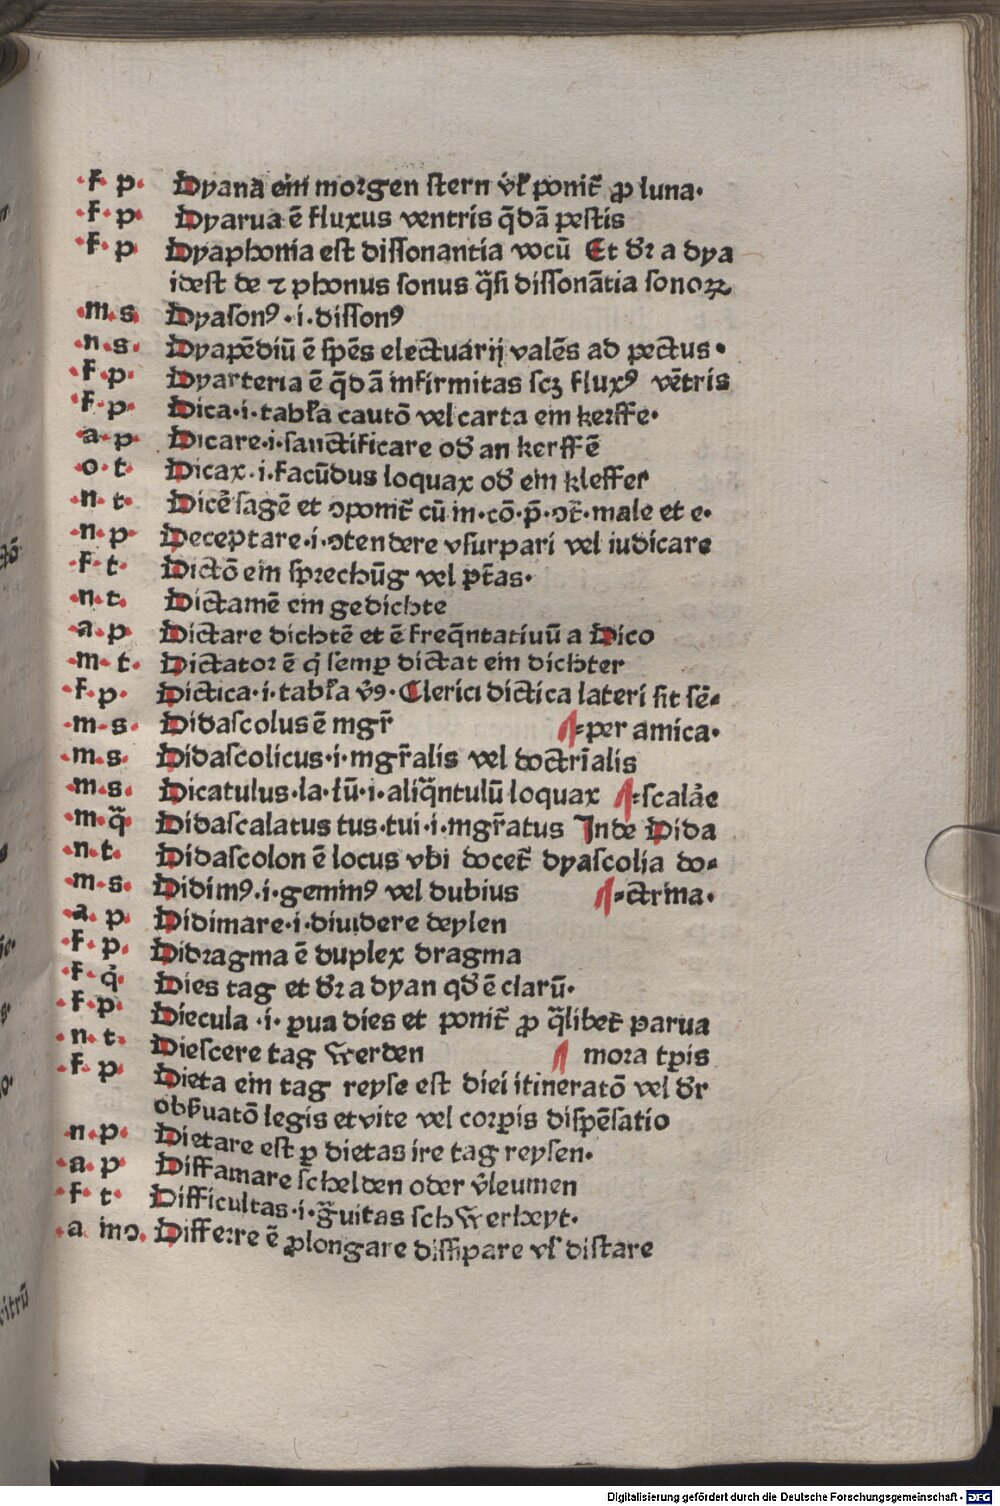 ·f· p· Dyana ein morgen stern vl̄ ponit̄ ꝓ luna·
·f· p· Dyarua ē fluxus ventris q̄dā pestis
·f· p· Dyaphonia est dissonantia vocū Et dr̄ a dya
idest de ⁊ phonus sonus q̄si dissonātia sonoꝝ
·m· s· Dyasonꝰ·i·dissonꝰ
·n·s· Dyapēdiū ē spēs electuarij valēs ad pectus·
·f·p· Dyarteria ē q̄dā infirmitas scꝫ fluxꝰ vētris
·f·p· Dica·i·tabl̄a cautō vel carta ein kerffe·
·a·p· Dicare·i·sanctificare od̄ an kerffē
·o·t· Dicax·i·facūdus loquax od̄ ein kleffer
·n·t· Dicē sagē et ꝯponit̄ cū in·cō·p̄·ꝯt̄·male et e·
·n·p· Deceptare·i·ꝯtendere vsurpari vel iudicare
·f·t· Dictō ein sprechūg vel pt̄as·
·n·t· Dictamē ein gedichte
·a·p Dictare dichtē et ē freq̄ntatiuū a Dico
·m·t· Dictator ē q̇ semꝑ dictat ein dichter
·f·p· Dictica·i·tabl̄a v̄ꝰ·Clerici dictica lateri sit sē⸗
·m·s· Didascolus ē mgr̄ ¶⸗per amica·
·m·s· Didascolicus·i·mgr̄alis vel doctrīalis
·m·s· Dicatulus·la·lū·i·aliq̄ntulū loquax ¶⸗scalāe
·m·q̄· Didascalatus tus·tui·i·mgr̄atus Inde Dida
·n·t· Didascolon ē locus vbi docet̄ dyascolia do⸗
·m·s· Didimꝰ·i·geminꝰ vel dubius ¶⸗ctrina·
·a·p· Didimare·i·diuidere deylen
·f·p· Didragma ē duplex dragma
·f·q̇· Dies tag et dr̄ a dyan qd̄ ē clarū·
·f·p· Diecula·i·ꝑua dies et ponit̄ ꝓ q̄libet parua
·n·t· Diescere tag werden ¶ mora tꝑis
·f·p· Dieta ein tag reyse est diei itineratō vel dr̄
obẜuatō legis et vite vel corꝑis dispēsatio
·n·p· Dietare est ꝑ dietas ire tag reysen·
·a·p· Diffamare schelden oder v̄leumen
·f·t· Difficultas·i·g̃uitas schwerheyt·
·a ino· Differre ē ꝓlongare dissipare vl̄ distare
Digitalisierung gefördert durch die Deutsche Forschungsgemeinschaft - DFG